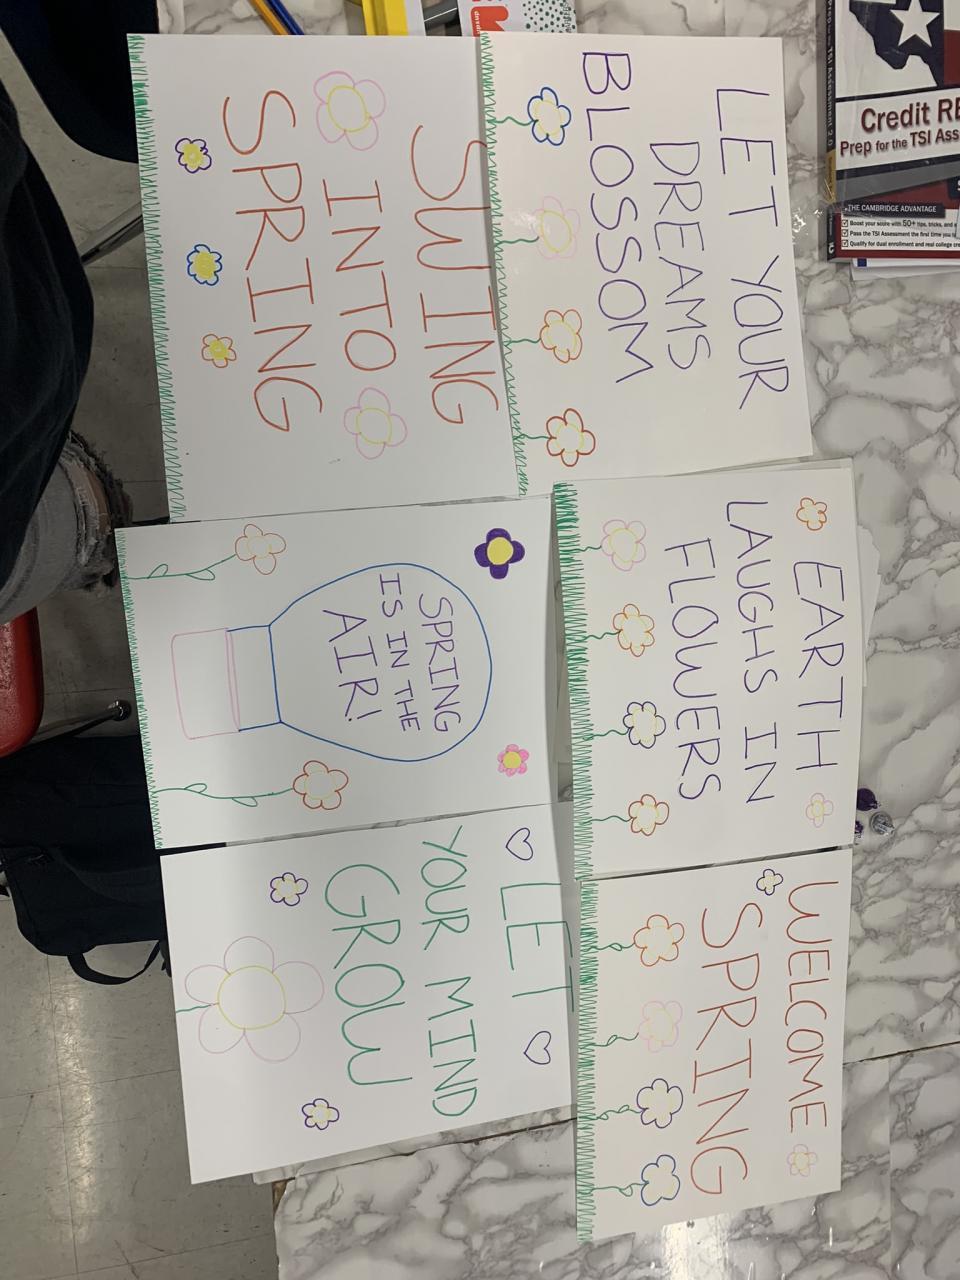 SWING
INTO
SPRING
LET YOUR
DREAMS
BLOSSOM
SPRING
IS IN THE
AIR!
EARTH
LAUGHS IN
FLOWERS
LET
YOUR MIND
GROW
WELCOME
SPRING
Credit RE
Prep for the TSI Ass
THE CAMBRIDGE ADVANTAGE
Boost your score with 50+ tips, tricks, and
Pass the TSI Assessment the first time you
Qualify for dual enrollment and real college cre